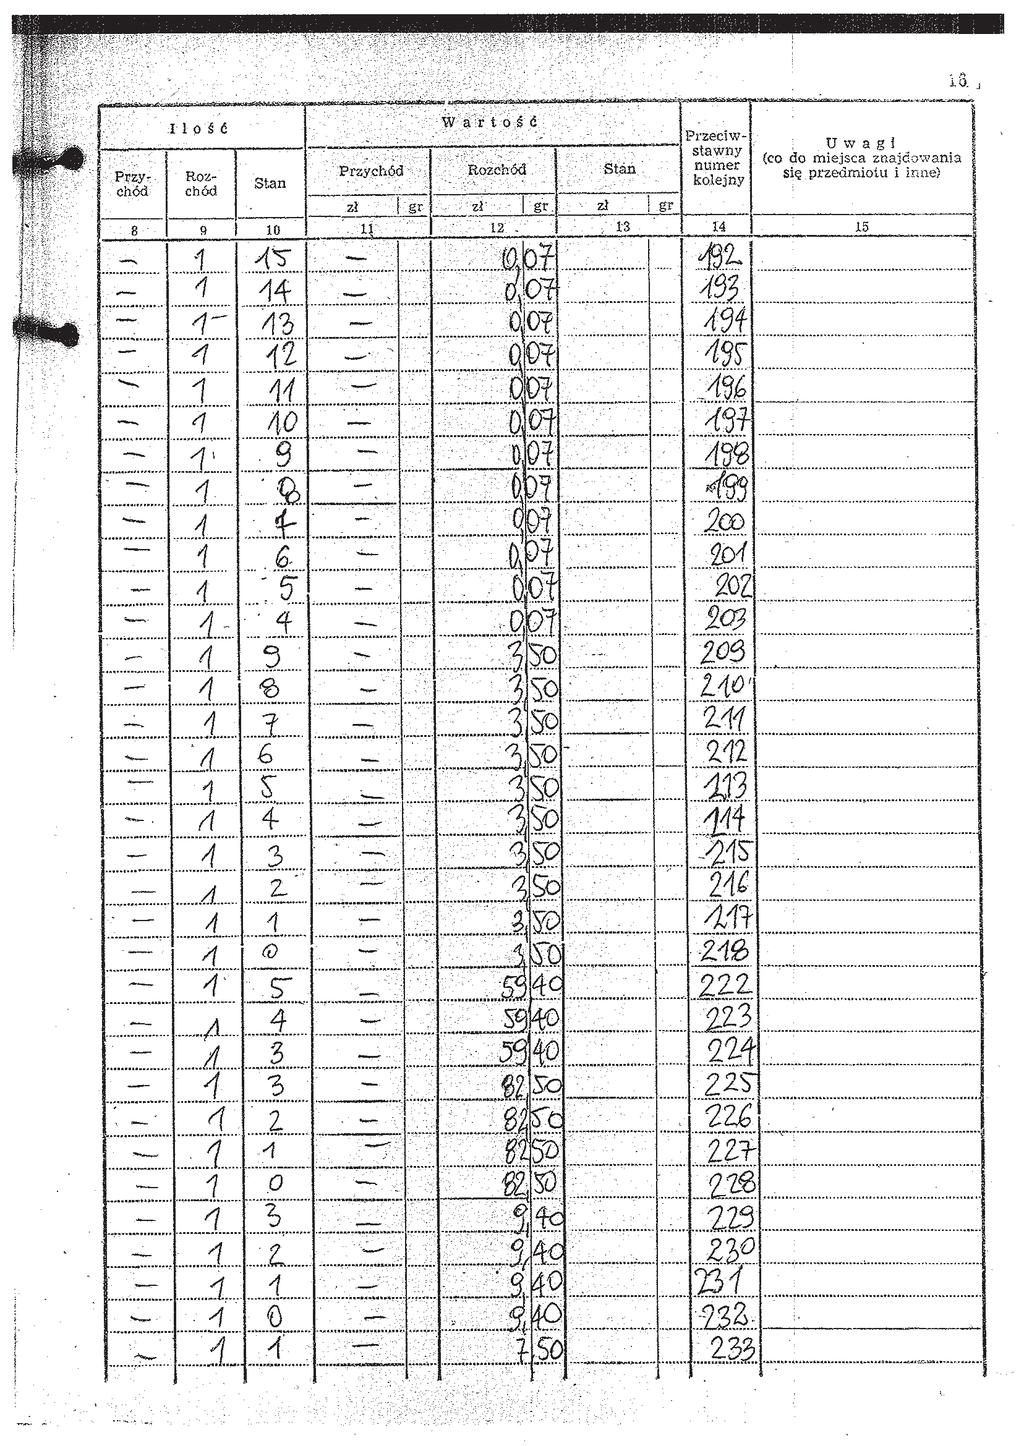 16
Ilość Wartość Przeciw-stawny numer kolejny Uwagi (co do miejsca znajdowania się przedmiotu i inne)
Przy-chód Roz-chód Stan Przychód Rozchód Stan
zł gr zł gr zł gr
8 9 10 11 12 13 14 15
— 1 15 — 0,07 192
— 1 14 — 0,07 193
— 1- 13 — 0,07 194
— 1 12 — 0,07 195
— 1 11 — 0,07 196
— 1 10 — 0,07 197
— 1 9 — 0,07 198
— 1 8 — 0,07 199
— 1 7 — 0,07 200
— 1 6 — 0,07 201
— 1 5 — 0,07 202
— 1 4 — 0,07 203
— 1 9 — 3,50 209
— 1 8 — 3,50 210
— 1 7 — 3,50 211
— 1 6 — 3,50 212
— 1 5 — 3,50 213
— 1 4 — 3,50 114
— 1 3 — 3,50 215
— 1 2 — 3,50 216
— 1 1 — 3,50 217
— 1 0 — 3,50 218
— 1 5 — 59 40 222
— 1 4 — 59 40 223
— 1 3 — 59 40 224
— 1 3 — 82 50 225
— 1 2 — 82 50 226
— 1 1 — 82 50 227
— 1 0 — 82,50 228
— 1 3 — 9,40 229
— 1 2 — 9,40 230
— 1 1 — 9,40 231
— 1 0 — 9,40 232
— 1 1 — 7,50 233